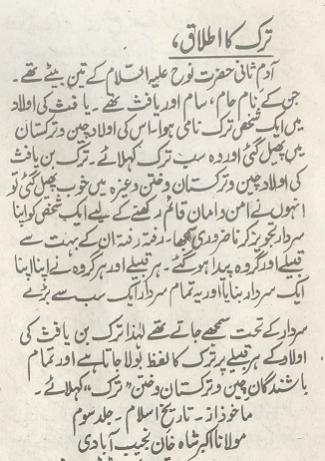 ترک کا اطلاق،
آدم ثانی حضرت نوح علیہ السّلام کے تین بیٹے تھے۔
جن کے نام حام، سام اور یافث تھے۔ یافث کی اولاد
میں ایک شخص ترک نامی ہوا۔ اس کی اولاد چین و ترکستان
میں پھیل گئی اور وہ سب ترک کہلائے۔ ترک بن یافث
کی اولاد چین و ترکستان و ختن وغیرہ میں خوب پھیل گئی تو
انہوں نے امن و امان قائم رکھنے کے لیے ایک شخص کو اپنا
سردار تجویز کرنا ضروری سمجھا۔ رفتہ رفتہ ان کے بہت سے
قبیلے اور گروہ پیدا ہو گئے۔ ہر قبیلے اور ہر گروہ نے اپنا اپنا
ایک سردار بنایا اور یہ تمام سردار ایک سب سے بڑے
سردار کے تحت سمجھے جاتے تھے لہٰذا ترک بن یافث کی
اولاد کے ہر قبیلے پر ترک کا لفظ بولا جاتا ہے اور تمام
باشندگانِ چین و ترکستان و ختن "ترک" کہلائے۔
ماخوذ از۔ تاریخ اسلام۔ جلد سوم
مولانا اکبر شاہ خان نجیب آبادی